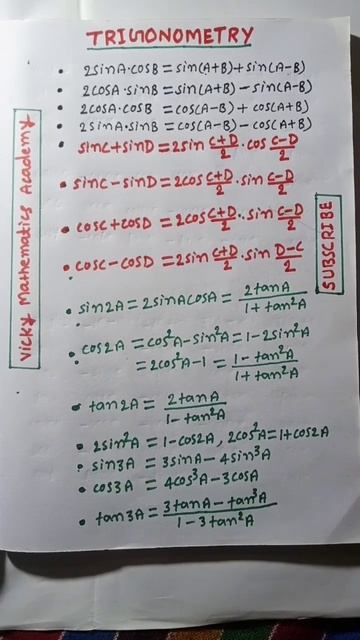 TRIGONOMETRY
• 2sinA·cosB = sin(A+B) + sin(A-B)
• 2cosA·sinB = sin(A+B) - sin(A-B)
• 2cosA·cosB = cos(A-B) + cos(A+B)
• 2sinA·sinB = cos(A-B) - cos(A+B)
• sinC + sinD = 2sin (C+D)/2 · cos (C-D)/2
• sinC - sinD = 2cos (C+D)/2 · sin (C-D)/2
• cosC + cosD = 2cos (C+D)/2 · sin (C-D)/2
• cosC - cosD = 2sin (C+D)/2 · sin (D-C)/2
• sin2A = 2sinAcosA = 2tanA/(1+tan²A)
• cos2A = cos²A - sin²A = 1 - 2sin²A
= 2cos²A - 1 = (1-tan²A)/(1+tan²A)
• tan2A = 2tanA/(1-tan²A)
• 2sin²A = 1 - cos2A, 2cos²A = 1 + cos2A
• sin3A = 3sinA - 4sin³A
• cos3A = 4cos³A - 3cosA
• tan3A = (3tanA - tan³A)/(1-3tan²A)
Vicky Mathematics Academy
SUBSCRIBE